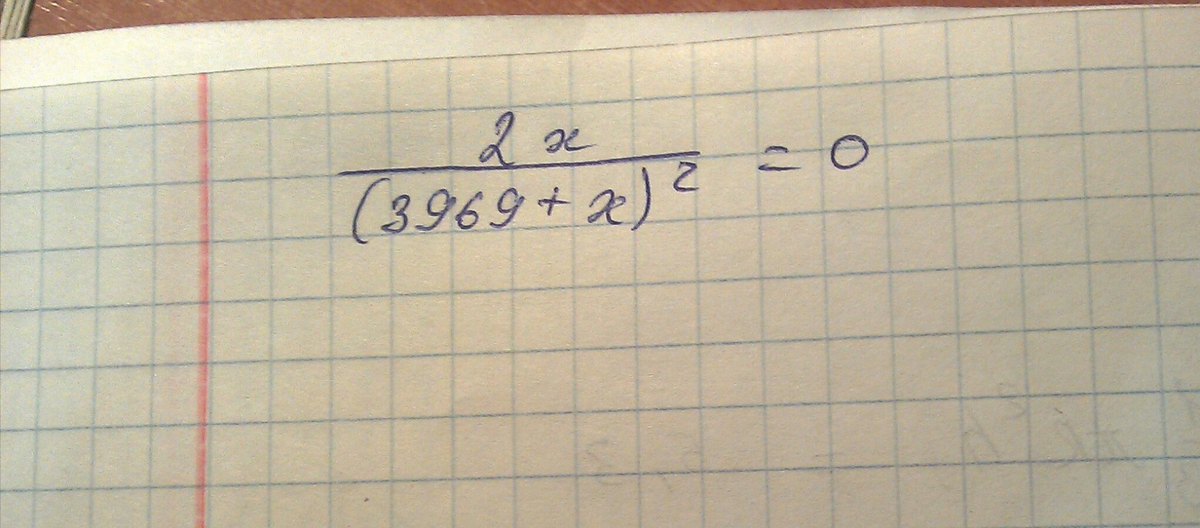 2x
(3969+x)² = 0